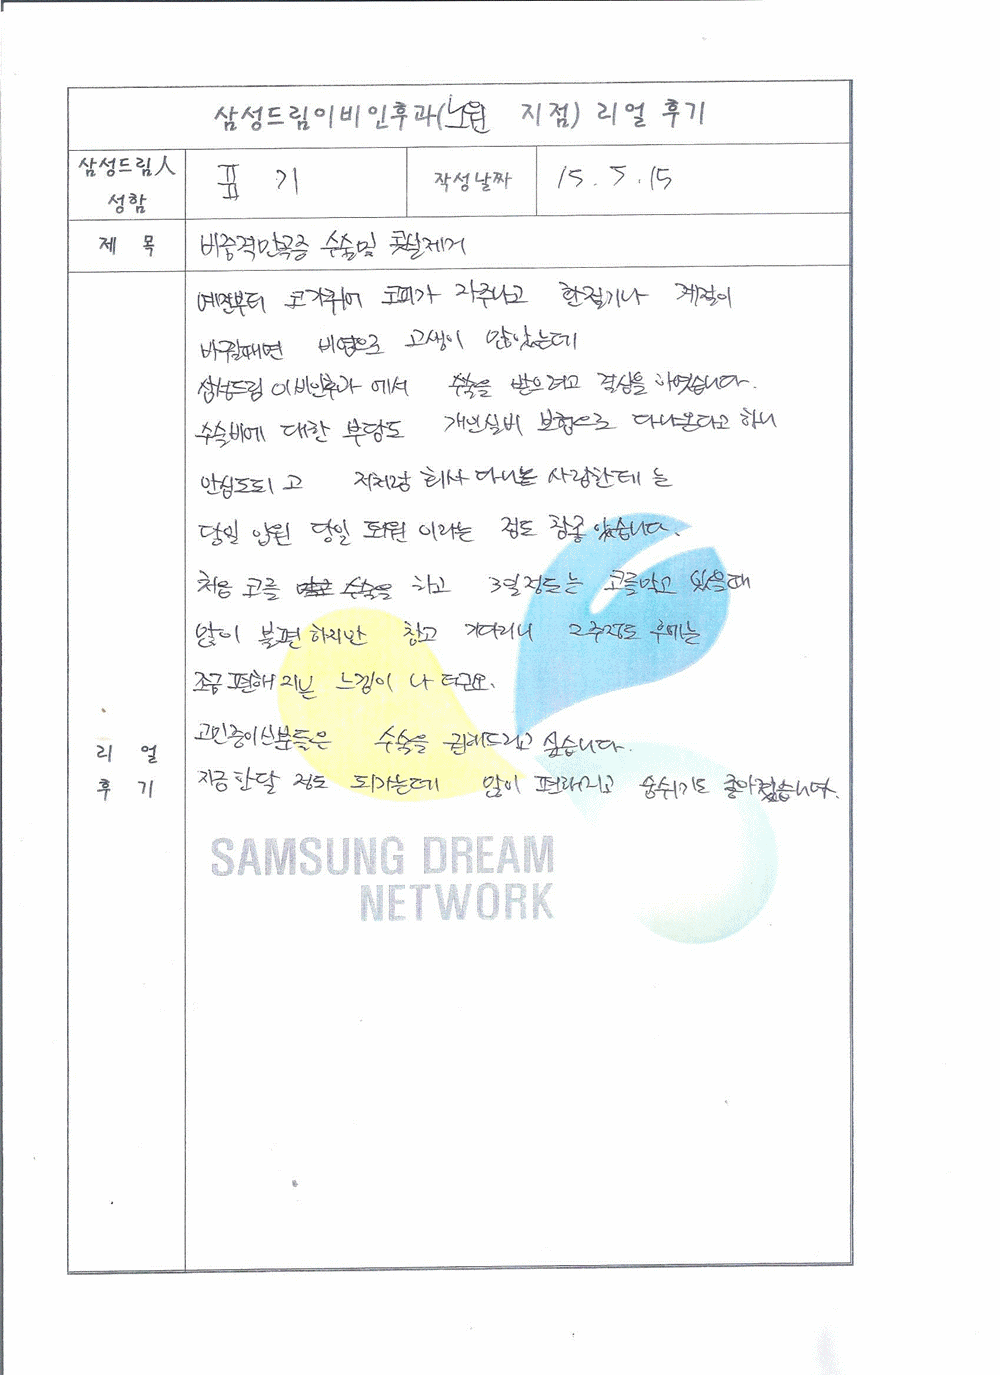 삼성드림이비인후과(노원 지점) 리얼 후기
삼성드림人 성함
표 기
작성날짜
15. 5. 15
제 목
비중격만곡증 수술및 콧살제거
예전부터 코감기에 코피가 자주나고 환절기나 계절이
바뀔때면 비염으로 고생이 많았는데
삼성드림 이비인후과 에서 수술을 받으려고 결심을 하였습니다.
수술비에 대한 부담도 개인실비 보험으로 다나온다고 하니
안심도되 고 저처럼 회사 다니는 사람한테 는
당일 입원 당일 퇴원 이라는 점도 참좋 았습니다.
처음 코를 수술을 하고 3일정도는 코를막고 있을때
많이 불편 하지만 참고 기다리니 2주정도 후에는
조금 편해 지는 느낌이 나 더군요.
고민중이신분들은 수술을 권해드리고 싶습니다.
지금 한달 정도 되가는데 많이 편해지고 숨쉬기도 좋아졌습니다.
리 얼
후 기
SAMSUNG DREAM
NETWORK